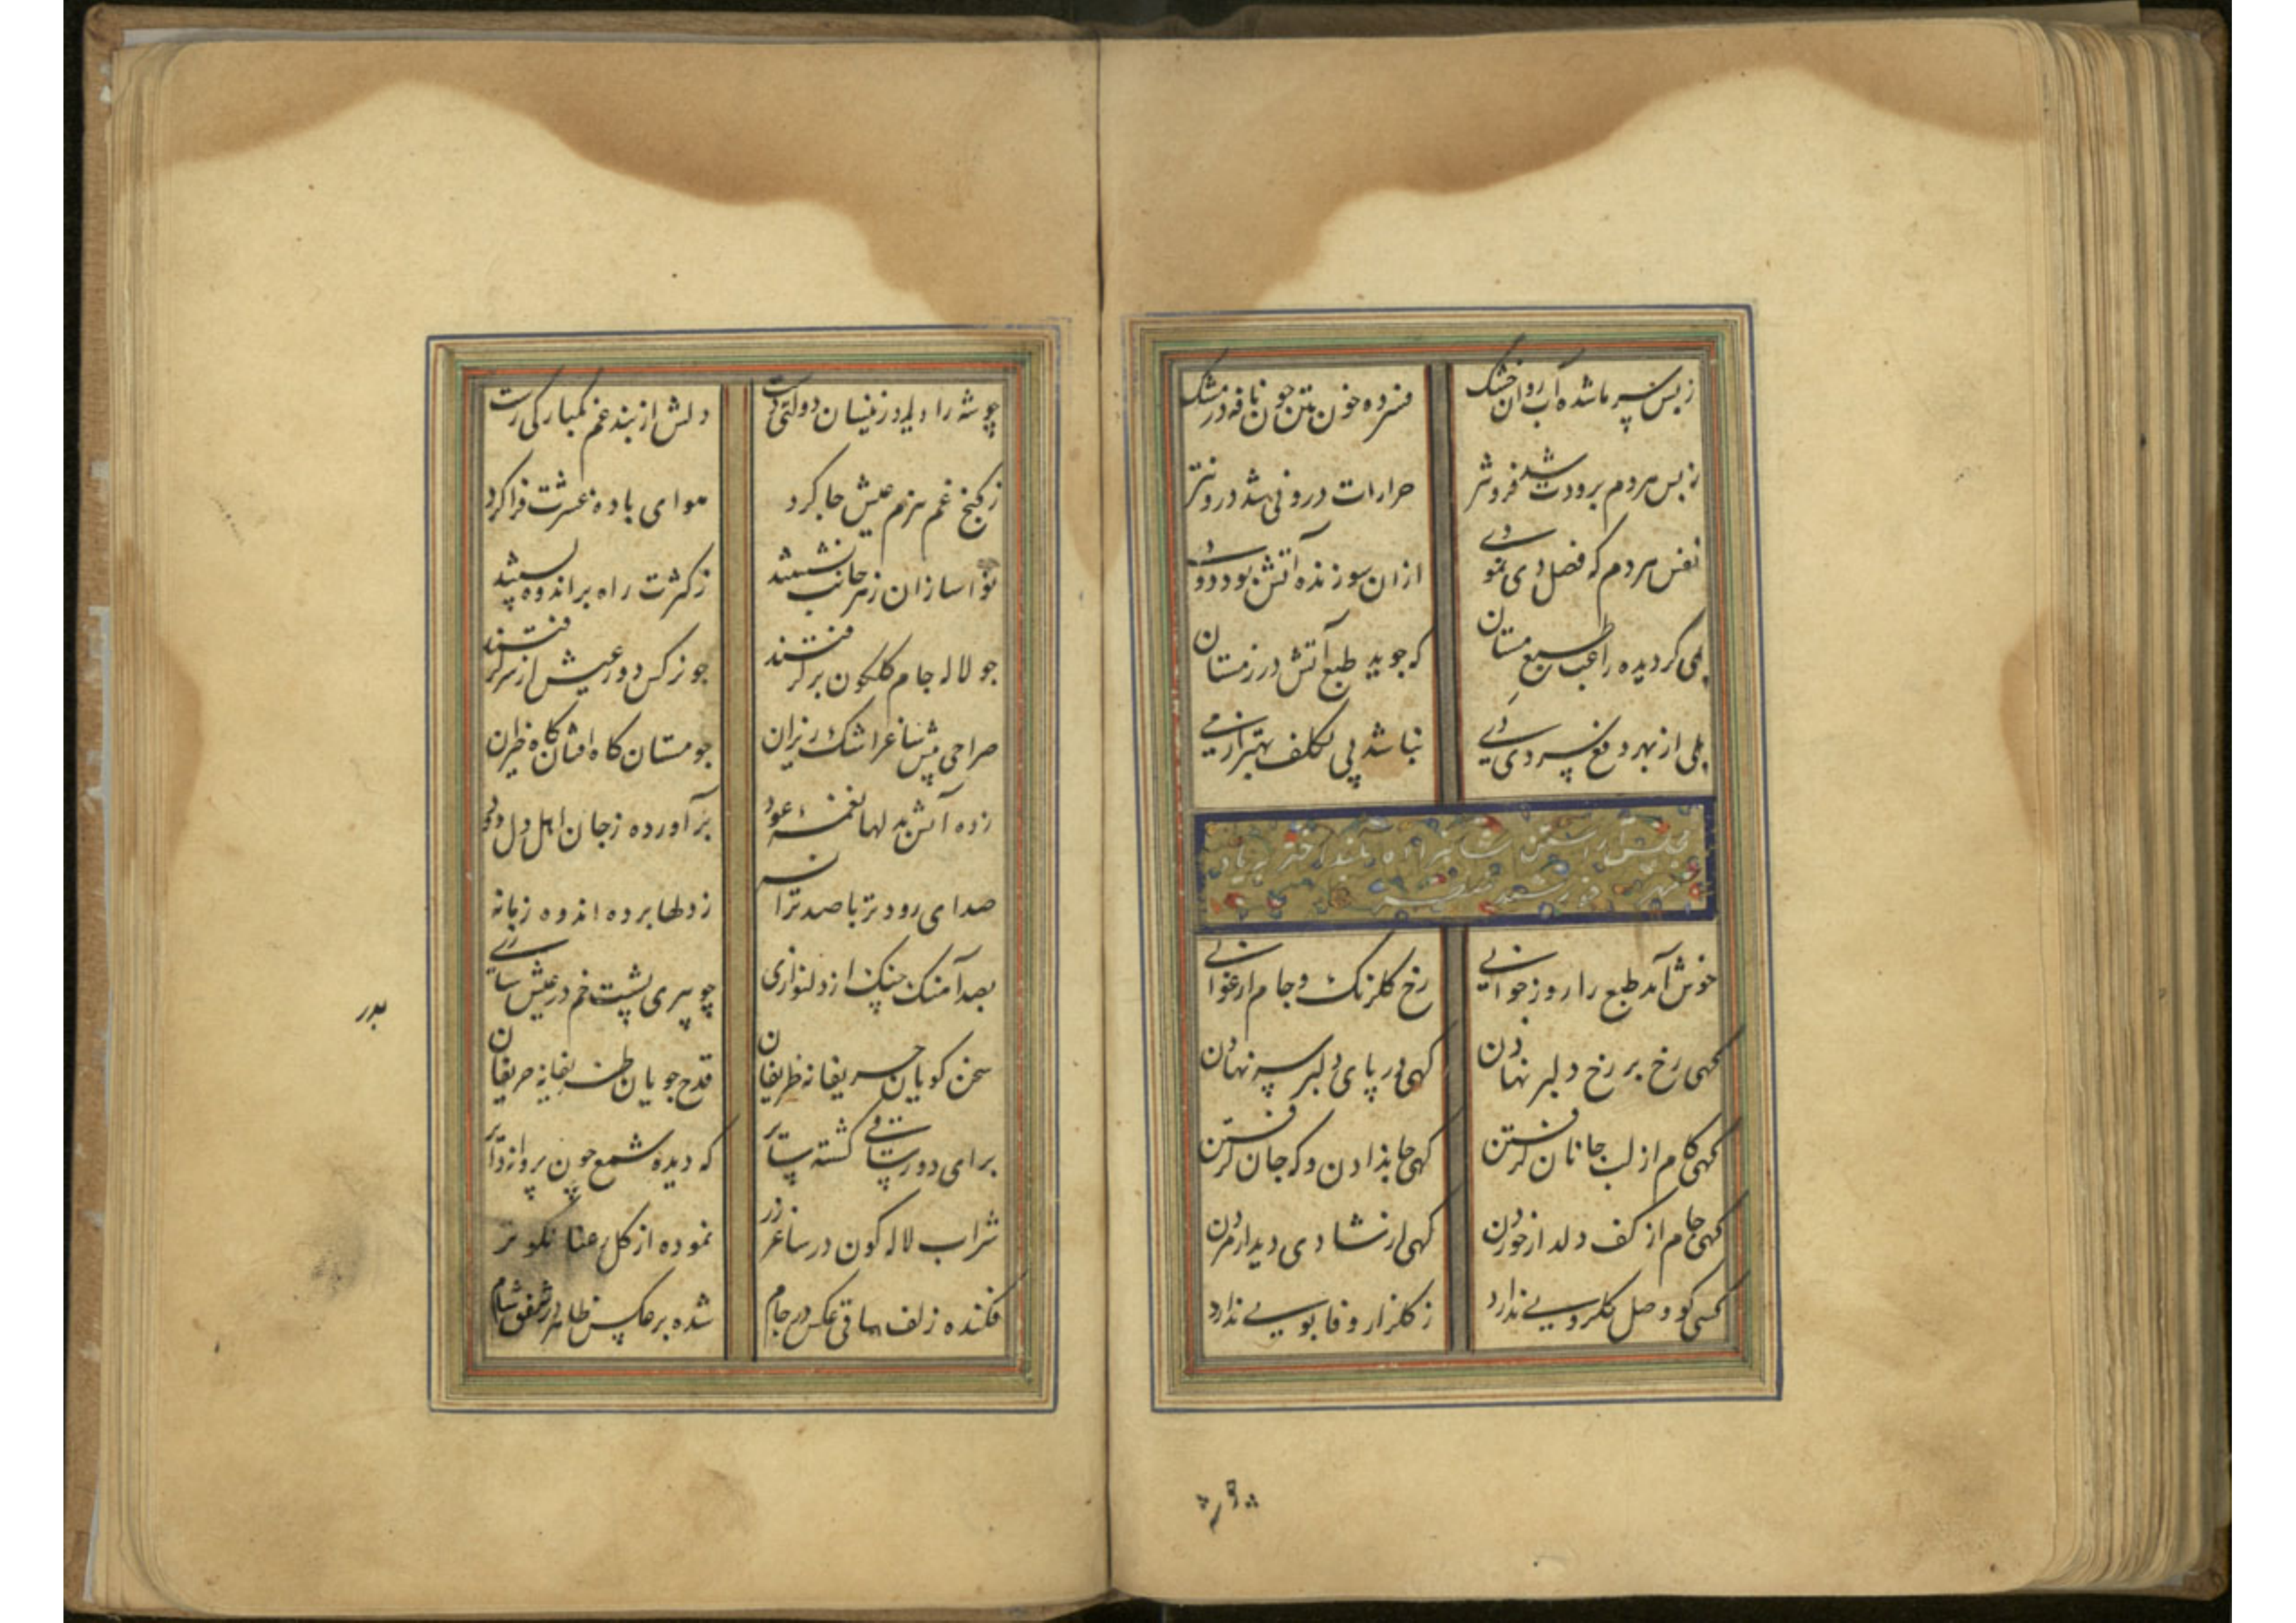 ز بس سرما شده آب روان خشک فسرده خون بتن چون نافه در مشک
ز بس مردم برودت شد فزونتر حرارات درونی شد درونتر
نفس مردم که فصل دی نمودی از ان سوزنده آتش بود دودی
بلی گردیده راغب طبع مستان که جوید طبع آتش در زمستان
بلی از بهر دفع سردی دی نباشد بی تکلف بهتر از می
مجلس آراستن شاهزاده
خوش آمد طبع را روز جوانی رخ گلرنگ و جام ارغوانی
گهی رخ بر رخ دلبر نهادن گهی در پای دلبر سر نهادن
گهی کام از لب جانان گرفتن گهی جا بدادن و گه جان گرفتن
گهی جام از کف دلدار خوردن گهی از شادی دیدار مردن
کسی کو وصل گلرویی ندارد ز گلزار وفا بویی ندارد
چو شه را دل
چو شه را دلبر و زینسان دولتی دست دلش از بند غم یکبارگی رست
ز کنج غم ببزم عیش جا کرد هوای باده عشرت فزا کرد
نواسازان ز هر جانب نشستند ز کثرت راه بر اندوه بستند
چو لاله جام گلگون برگرفتند چو نرگس دور عیش از سر گرفتند
صراحی پیش ساغر اشک ریزان چو مستان گاه افتان گاه خیزان
زده آتش بدلها نغمه عود برآورده ز جان اهل دل دود
صدای رود تر با صد ترانه ز دلها برده اندوه زمانه
بصد آهنگ چنگ از دلنوازی چو پیری پشت خم در عیش سازی
سخن گویان حریفانه ظریفان قدح جویان ظریفانه حریفان
برای دور ساقی گشته بیتاب که دیده شمع چون پروانه
شراب لاله گون در ساغر زر نموده از گل رعنا نکوتر
فکنده زلف ساقی عکس در جام شده بر عکس ظاهر در شفق شام
بدر